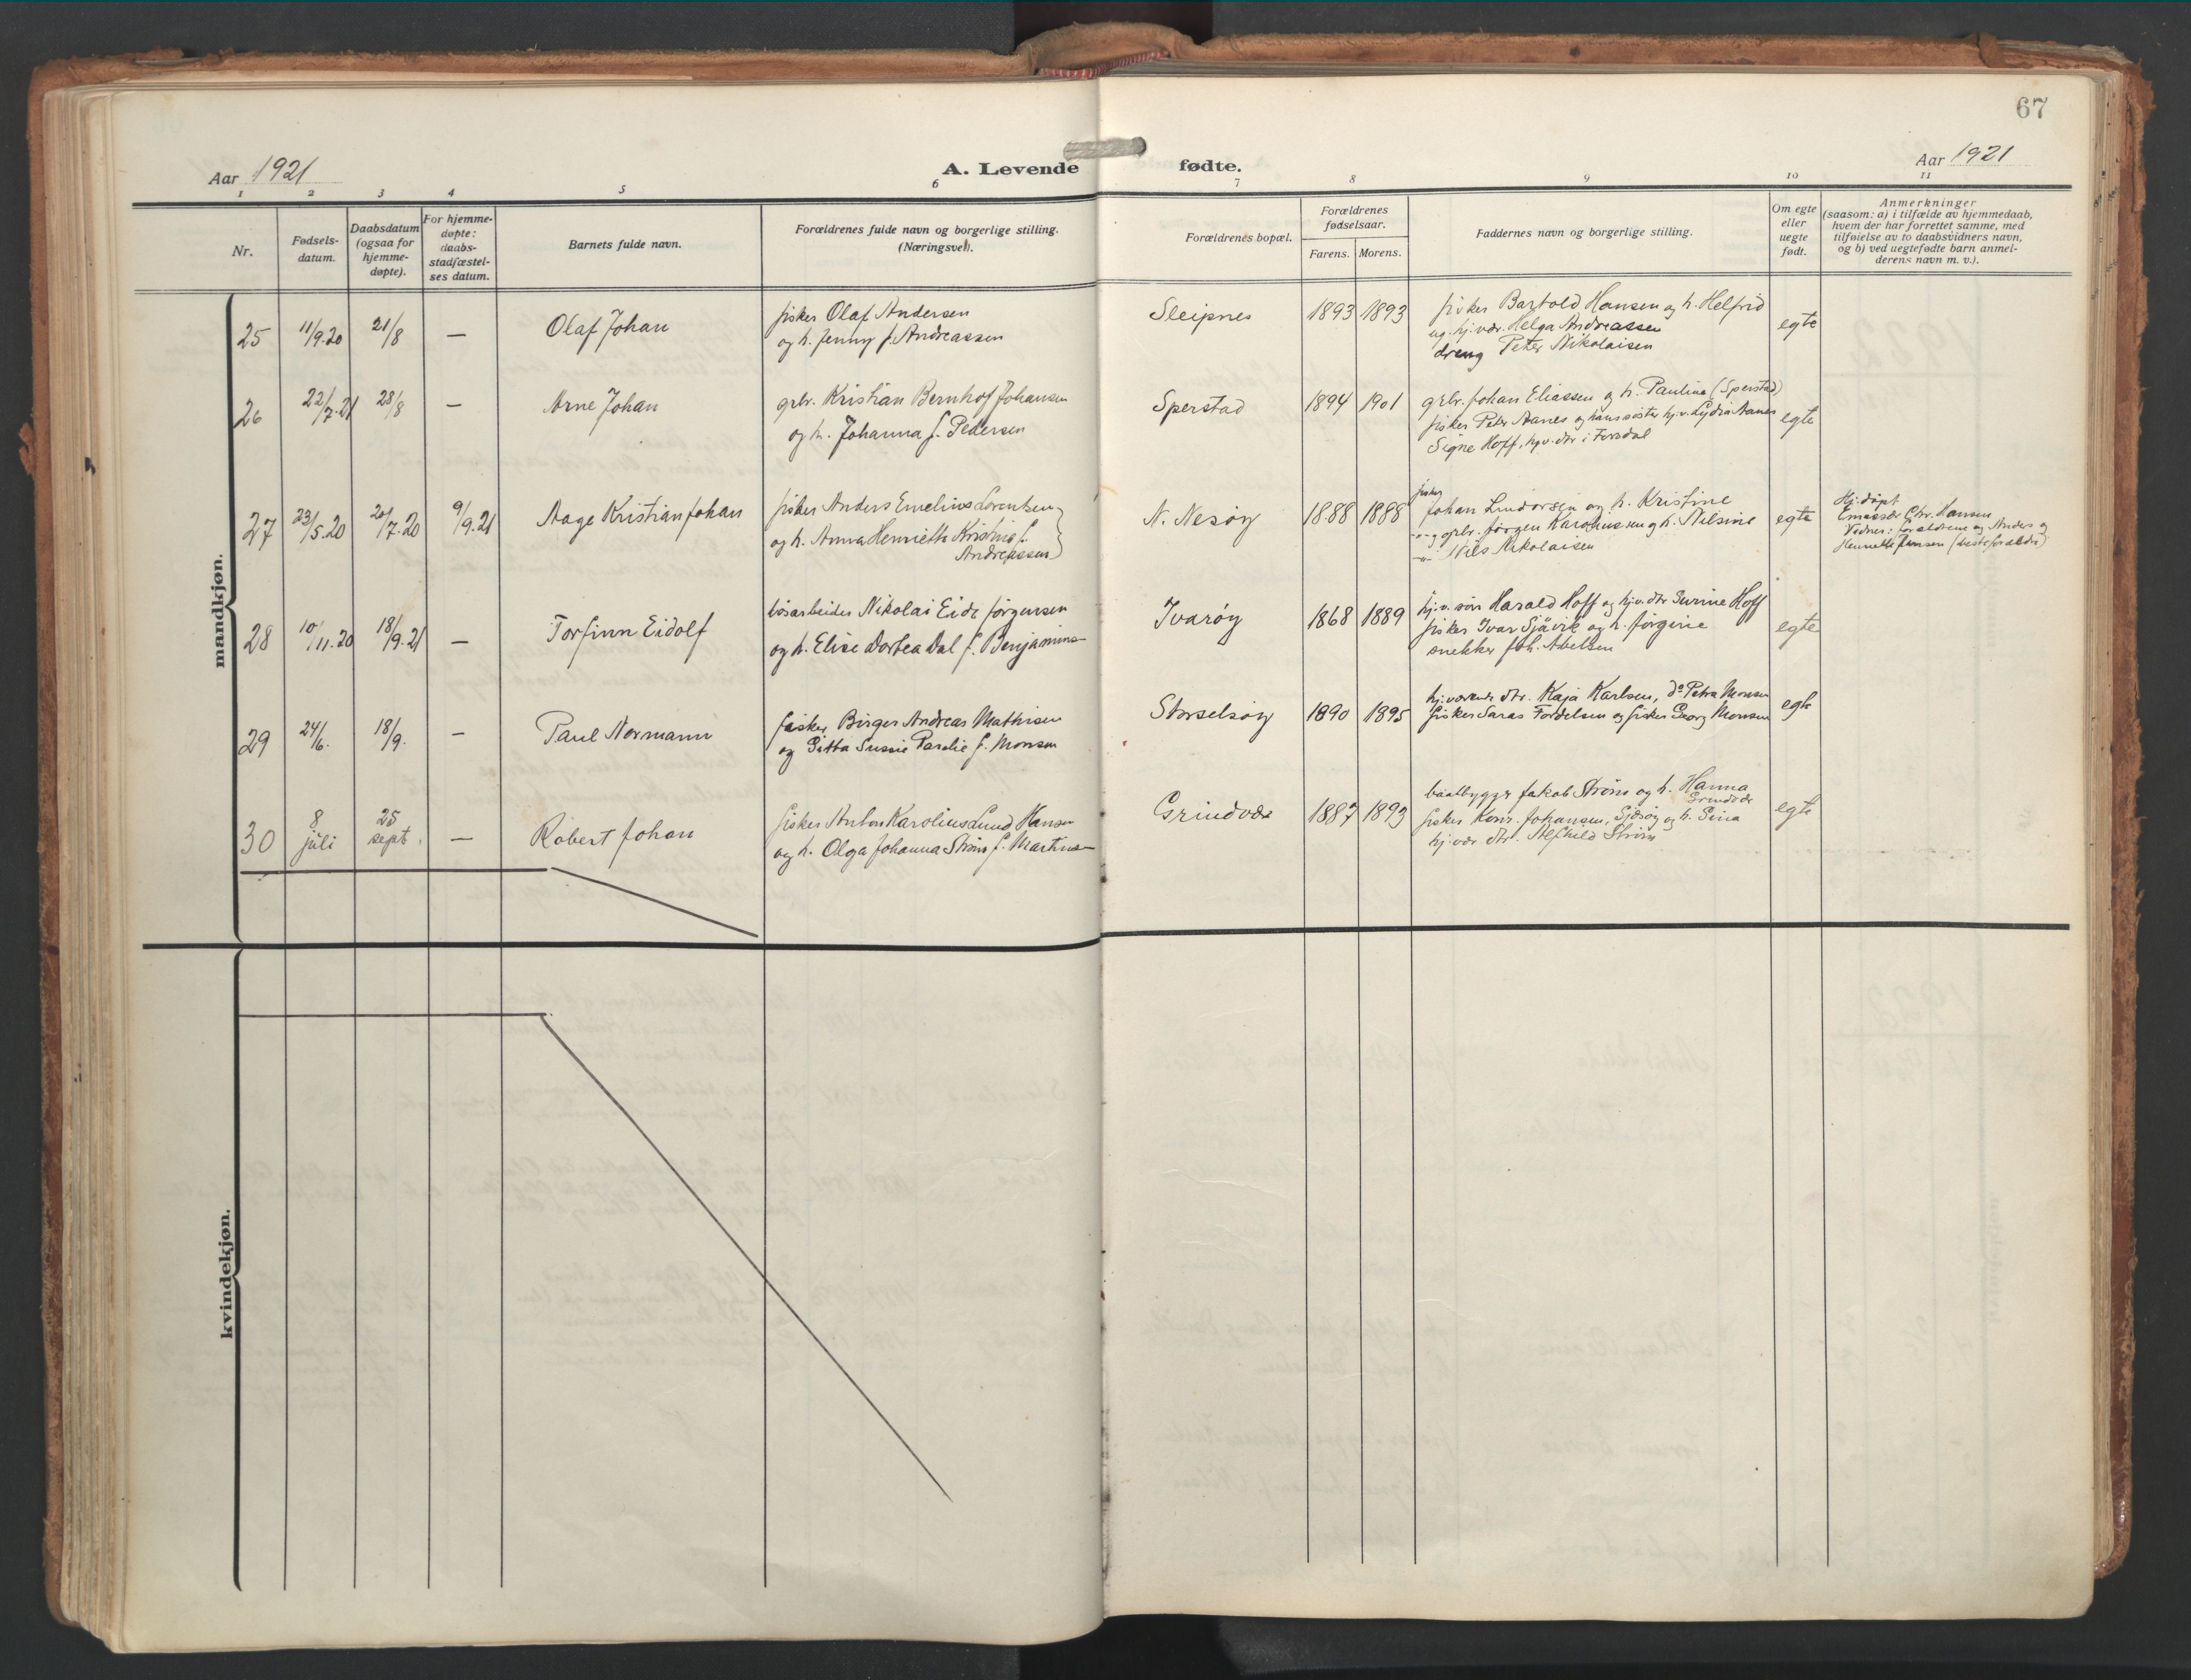 67
Aar 1921
A. Levende fødte.
Aar 1921
1 2 3 4 5 6 7 8 9 10 11
Nr.
Fødsels-
datum.
Daabsdatum
(ogsaa for
hjemme-
døpte).
For hjemme-
døpte:
daabs-
stadfæstel-
ses datum.
Barnets fulde navn.
Forældrenes fulde navn og borgerlige stilling.
(Næringsvei).
Forældrenes bopæl.
Forældrenes
fødselsaar.
Farens. Morens.
Faddernes navn og borgerlige stilling.
Om egte
eller
uegte
født.
Anmerkninger
(saasom: a) i tilfælde av hjemmedaab,
hvem der har forrettet samme, med
tilføielse av to daabsvidners navn,
og b) ved uegtefødte barn anmel-
derens navn m. v.).
mandkjøn.
25 11/9.20 21/8 — Olaf Johan
fisker Olaf Andersen
og h. Jenny f. Andreassen
Sleipnes 1893 1893
fisker Bartold Hansen og h. Helfrid
ug. hj.vær. Helga Andreassen
dreng Peter Nikolaisen
egte
26 22/7.21 28/8 — Arne Johan
grbr. Kristian Bernhof Johansen
og h. Johanna f. Pedersen
Sperstad 1894 1901
grbr. Johan Eliassen og h. Pauline (Sperstad)
fisker Peter Aanes og hans søster hj.v. Lydia Aanes
Signe Hoff, hj.v. dtr i Forsdal
egte
27 23/5.20 20/7.20 9/9.21 Aage Kristian Johan
fisker Anders Emelius Lorentsen
og h. Anna Henriette Kristine f.
Andreassen
N. Nesøy 1888 1888
fisker
Johan Lindorsen og h. Kristine
-"- og grbr. Jørgen Karoliussen og h. Nilsine
-"- Nils Nikolaisen
egte
Hj. døpt
Emissær Chr. Hansen
Vidner: forældrene og Anders og
Henrette Jensen (besteforældre)
28 10/11.20 18/9.21 — Torfinn Eidolf
løsarbeider Nikolai Eide Jørgensen
og h. Elise Dortea Dal f. Benjamins-
Ivarøy 1868 1889
hj.v. søn Harald Hoff og hj.v. dtr Surine Hoff
fisker Ivar Sjåvik og h. Jørgine
snekker Joh. Abelsen
egte
29 24/6. 18/9. — Paul Normann
fisker Birger Andreas Mathisen
og Gitta Sussie Pardie f. Monsen
Storselsøy 1890 1895
hj.værende dtr. Kaja Karlsen, do Petra Monsen
fisker Saras Fordelsen og fisker Georg Monsen
egte
30 8 juli 25 sept. — Robert Johan
fisker Anton Karolius Lund Hansen
og h. Olga Johanna Strøm f. Martins-
Grindvær 1887 1893
baatbygger Jakob Strøm og h. Hanna
Grindvær
fisker Konr. Johansen, Sjøsøy og h. Sina
hj.vær dtr. Alfhild Strøm
egte
kvindekjøn.